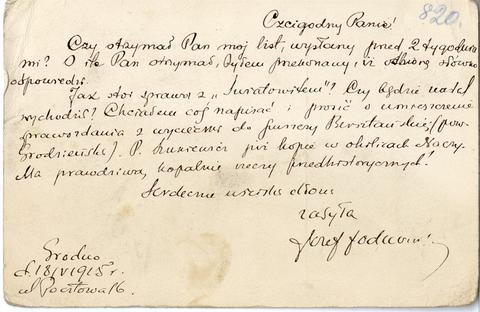 820.
Czcigodny Panie!
Czy otrzymał Pan mój list, wysłany przed 2 tygodnia
mi? O ile Pan otrzymał, byłem przekonany, iż odbiorę słówko
odpowiedzi.
Jak stoi sprawa z „Światowitem"? Czy będzie nadal
wychodził? Chciałem coś napisać i prosić o umieszczenie
sprawozdania z wycieczki do puszczy Berszt
Grodzieński). P. już kopie w okolicach Naczy.
Ma prawdziwą kopalnię rzeczy przedhistorycznych!
Serdeczne uściski dłoni
zasyła
Józef Jodkowski
Grodno
d. 18/V 1915 r.
ul. Pocztowa 6.